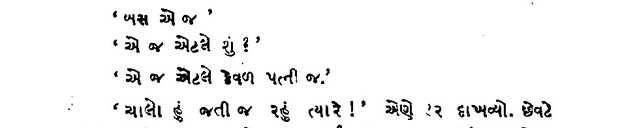 ‘ બસ એ જ ’
‘ એ જ એટલે શું ?’
‘ એ જ એટલે કેવળ પત્ની જ.’
‘ ચાલો હું જતી જ રહું ત્યારે !’ એણે દાખવ્યો. છેવટે